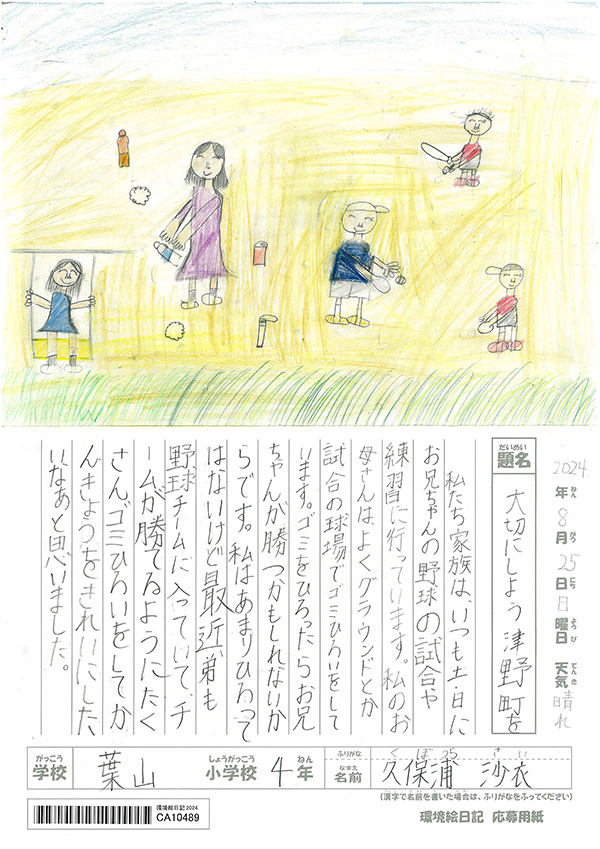 2024年8月25日日曜日 天気晴れ
ねん がつ にち ようび てんき
だいめい
題名 大切にしよう津野町を
私たち家族は、いつも土・日に
お兄ちゃんの野球の試合や
練習に行っています。私のお
母さんは、よくグラウンドとか
試合の球場でゴミひろいをして
います。ゴミをひろったらお兄
ちゃんが勝つかもしれないか
らです。私はあまりひろって
はないけど最近弟も
野球チームに入っていて、チ
ームが勝てるようにたく
さんゴミひろいをしてか
んきょうをきれいにした
いなぁと思いました。
がっこう しょうがっこう ねん
学校 葉山 小学校 4年
ふりがな くぼうら さい
なまえ
名前 久保浦 沙衣
(漢字で名前を書いた場合は、ふりがなをふってください)
環境絵日記2024
CA10489
環境絵日記 応募用紙